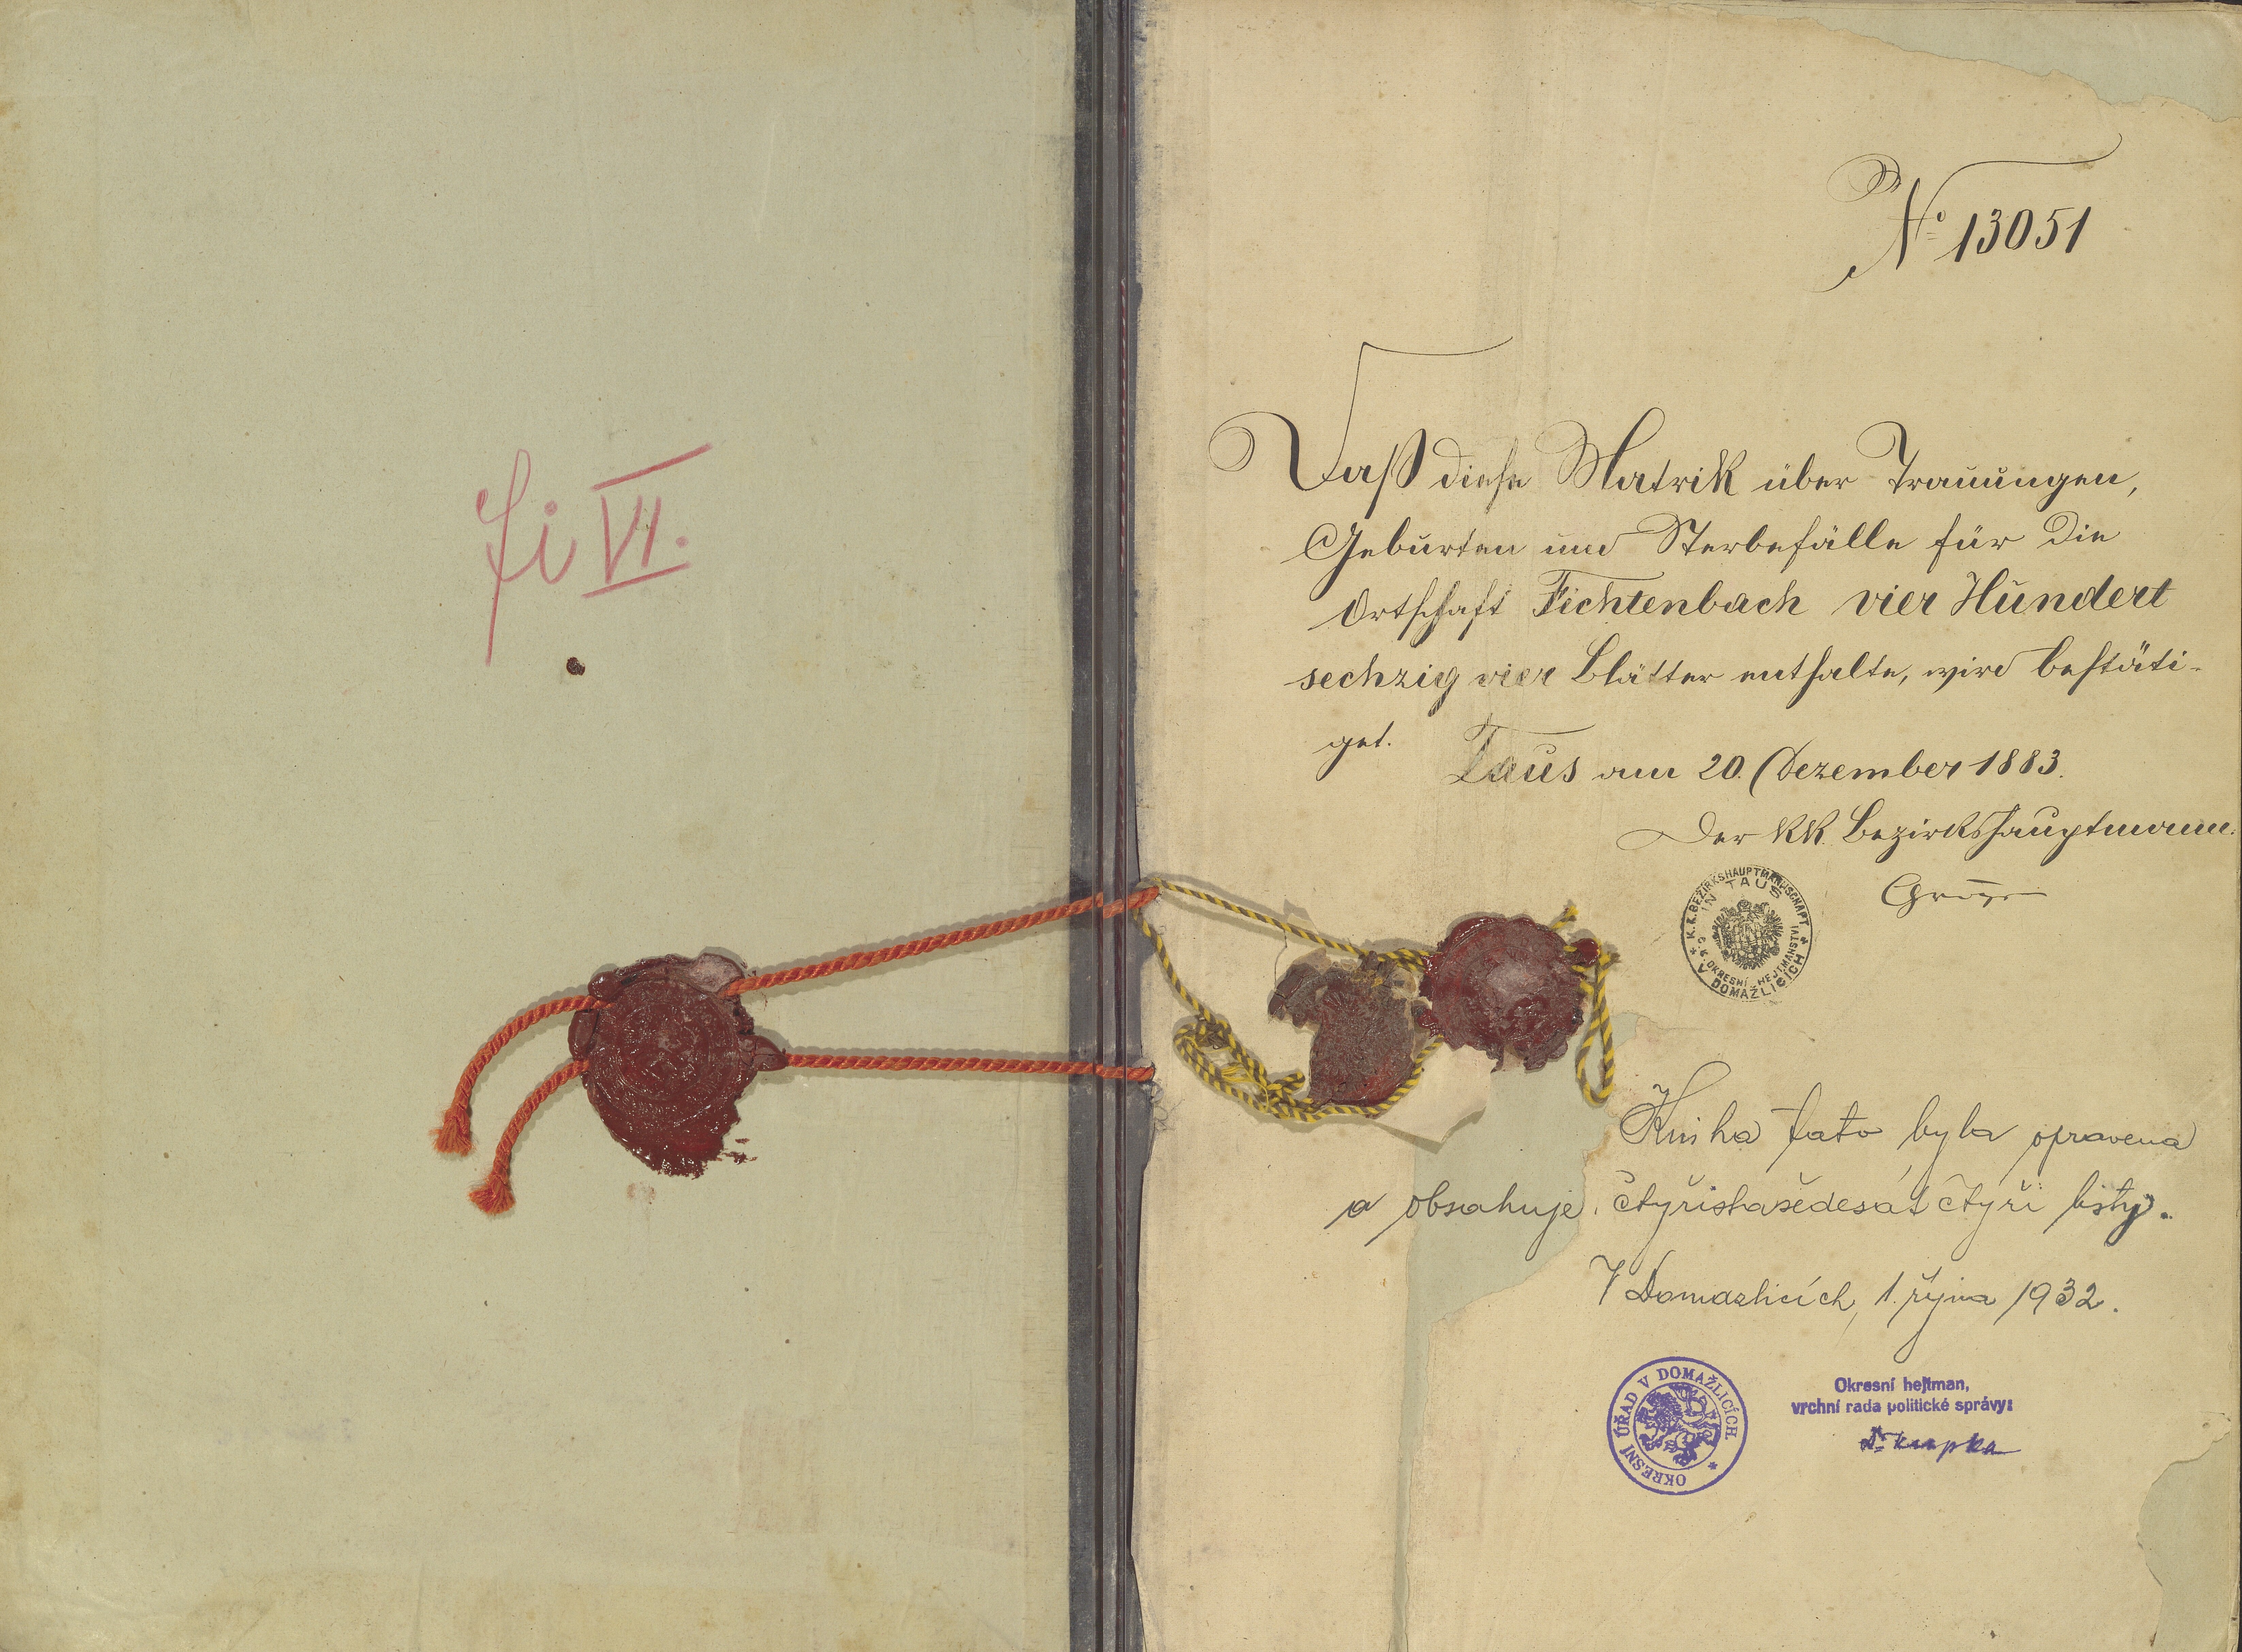 fi VI.
No 13051
Daß diese Matrik über Trauungen,
Geburten und Sterbefälle für die
Ortschaft Fichtenbach vier Hundert
sechzig vier Blätter enthalte, wird bestäti-
get.
Taus am 20. Dezember 1883.
Der kk. Bezirkshauptmann:
* K.K. BEZIRKSHAUPTMANNSCHAFT *
IN TAUS
C.K. OKRESNÍ HEJTMANSTVÍ
V DOMAŽLICÍCH
Kniha tato byla opravena
a obsahuje čtyřistašedesát čtyři listy.
V Domažlicích, 1. října 1932.
OKRESNÍ ÚŘAD V DOMAŽLICÍCH. *
Okresní hejtman,
vrchní rada politické správy:
Dr. Krupka